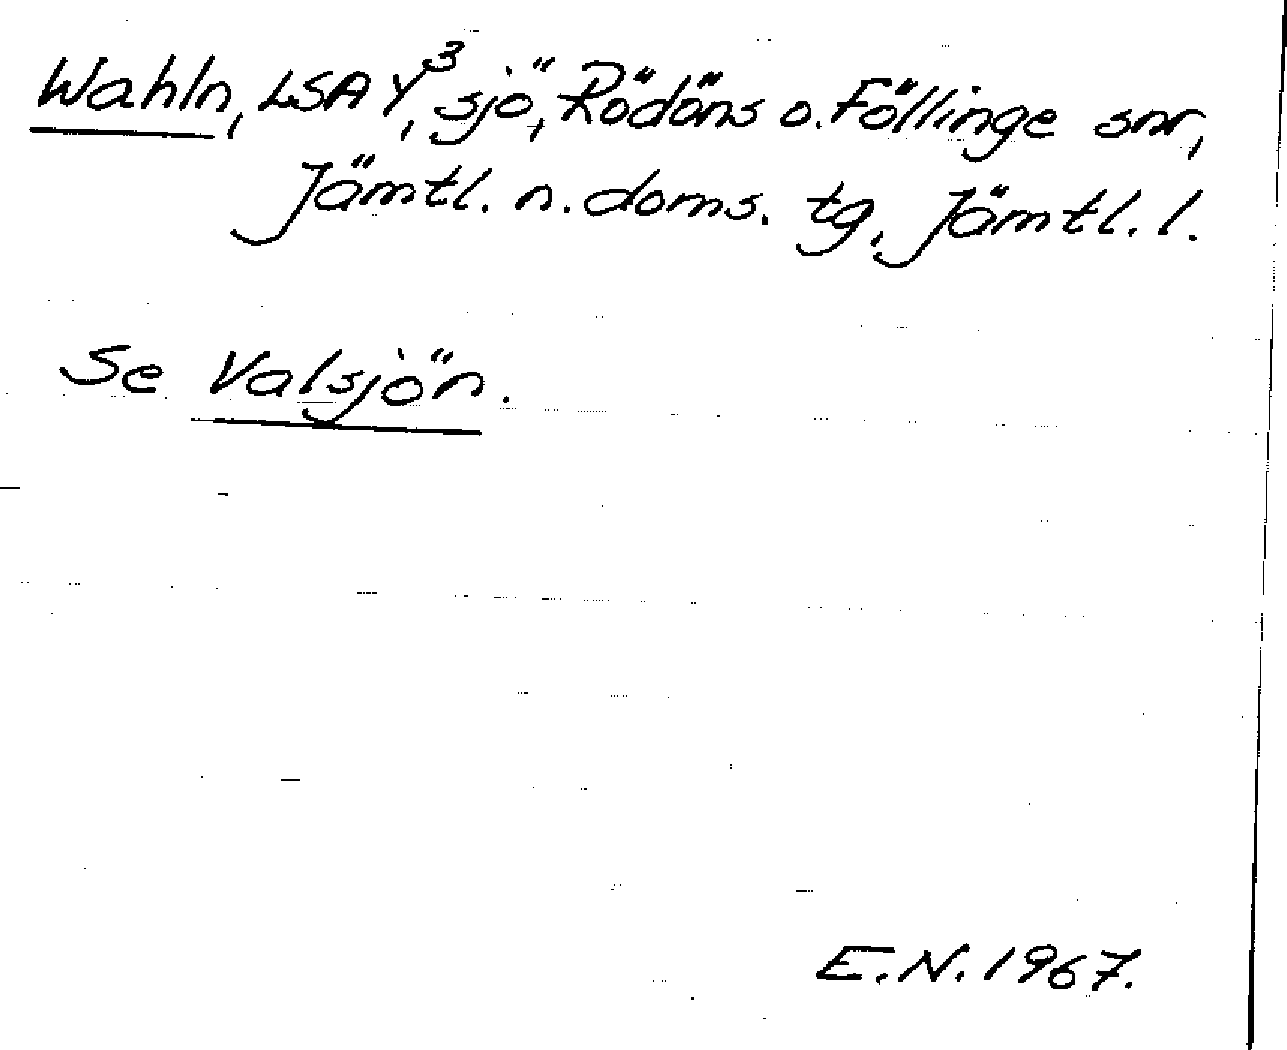 Wahln, LSA Y³, sjö, Rödöns o. Föllinge snr,
Jämtl. n. doms. tg, Jämtl. l.
Se Valsjön.
E.N. 1967.